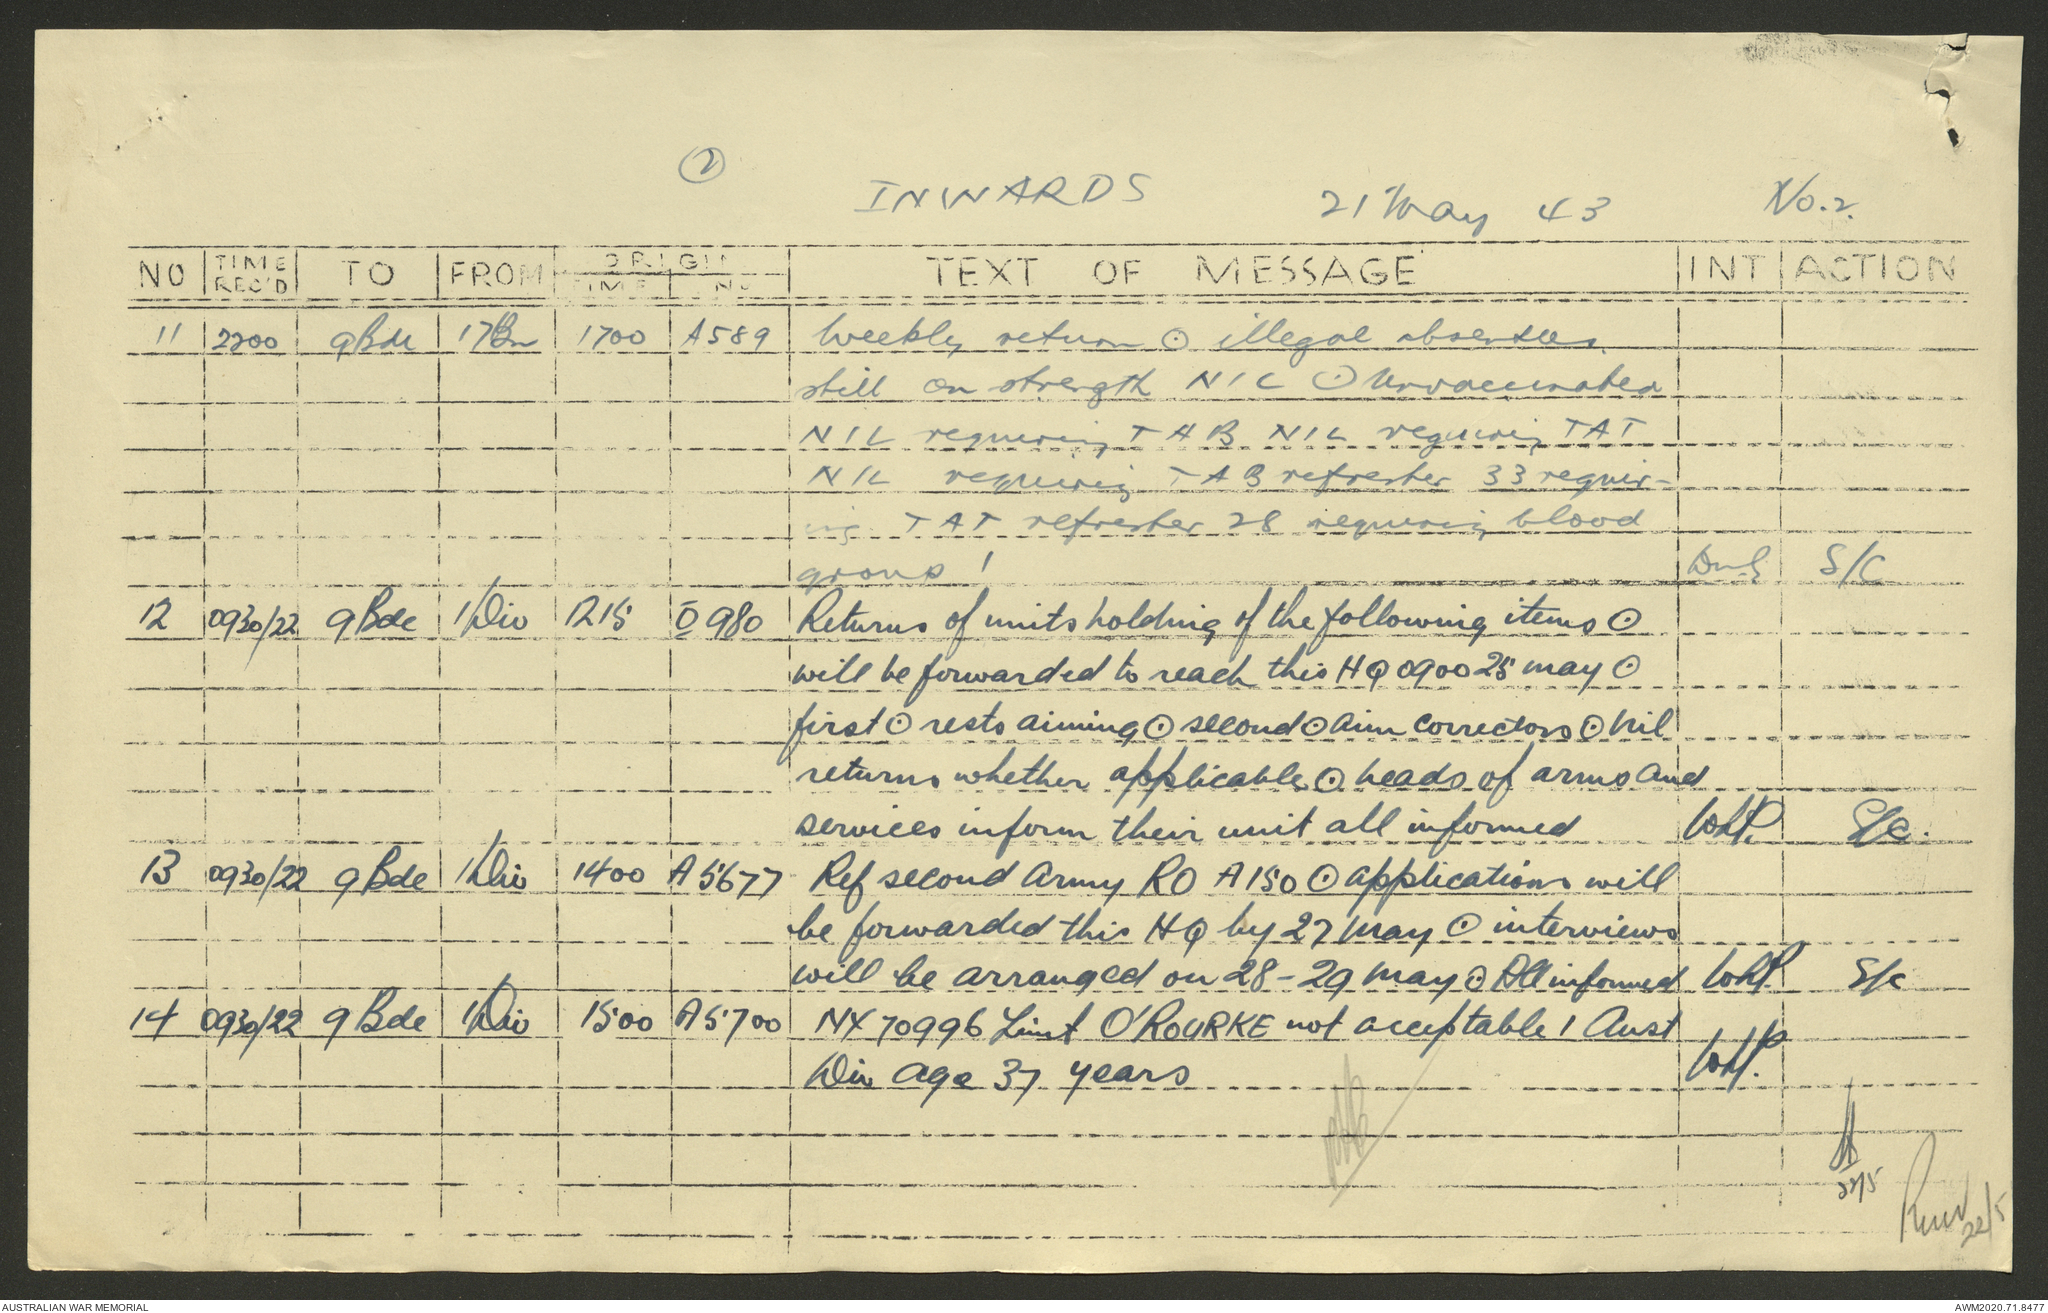 ②
INWARDS 21 May 43 No. 2.
NO TIME REC'D TO FROM ORIGIN TIME NO TEXT OF MESSAGE INT ACTION
11 2200 9 Bde 17 Bn 1700 A589 Weekly return ⊙ illegal absentees
still on strength NIL ⊙ Unvaccinated
NIL requiring TAB NIL requiring TAT
NIL requiring TAB refresher 33 requir-
ing TAT refresher 28 requiring blood
group 1 S/C
12 0930/22 9 Bde 1 Div 1215 O 980 Returns of units holding of the following items ⊙
will be forwarded to reach this HQ 0900 25 may ⊙
first ⊙ rests aiming ⊙ second ⊙ aim correctors ⊙ nil
returns whether applicable ⊙ heads of arms and
services inform their unit all informed WhP. S/c.
13 0930/22 9 Bde 1 Div 1400 A5677 Ref second Army RO A150 ⊙ applications will
be forwarded this HQ by 27 May ⊙ interviews
will be arranged on 28-29 may ⊙ All informed WhP. S/c
14 0930/22 9 Bde 1 Div 1500 A5700 NX70996 Lieut O'ROURKE not acceptable 1 Aust
Div age 37 years WhP.
22/5
22/5
AUSTRALIAN WAR MEMORIAL AWM2020.71.8477